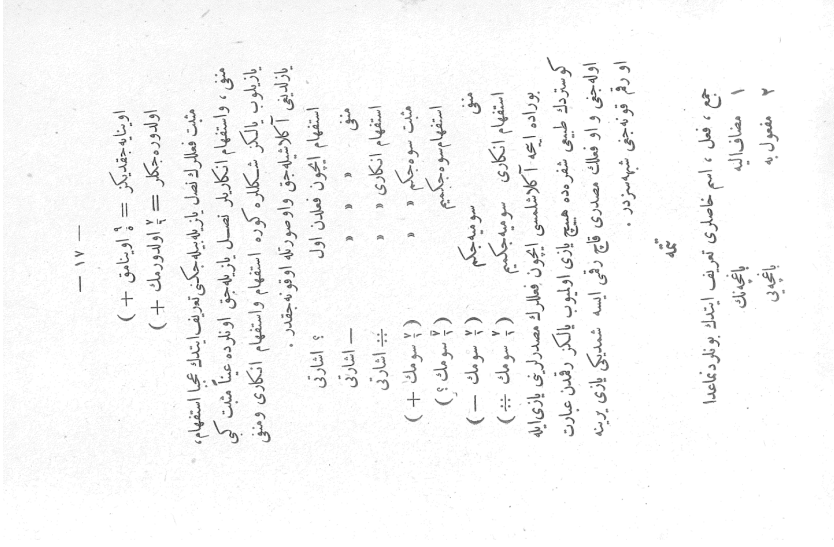 — ١٧ —
(+ اوینامق ؟/٩ = اوینایه جقدیكز
(+ اولدورمك ٢/٤ = اولدوره جكلر
مثبت فعللرك نصل یازیله بیله جكنی تعریف ایتدك عجبا استفهام،
منفی ، واستفهام انكاریلر نصل یازیله جق اونلرده عیناً مثبت كبی
یازیلوب یالكز شكللره كوره استفهام واستفهام انكاری ومنفی
یازلدیغی آكلاشیله جق واوصورتله اوقونه جقدر .
؟ اشارتی استفهام ایچون فعلدن اول
— اشارتی » » » منفی
÷ اشارتی » » استفهام انكاری
(+ سومك ) » » مثبت سوه جكم
(؟ سومك ) استفهام سوه جكمیم
(— سومك ) سومیه جكم منفی
(÷ سومك ) سومیه جكمیم استفهام انكاری
بوراده ایجه آكلاشلمسی ایچون فعللرك مصدرلرینی یازی ایله
كوستردك طبیعی شفره ده هیچ یازی اولمیوب یالكز رقمدن عبارت
اوله جغی و او فعلك مصدری قاچ رقمی ایسه شمدیكی یازی یرینه
او رقم قونه جغی شبهه سزدر .
تتمه
جمع ، فعل ، اسم خاصلری تعریف ایتدك بونلردنماعدا
١ مضاف الیه باغچه نك
٢ مفعول به باغچه یی